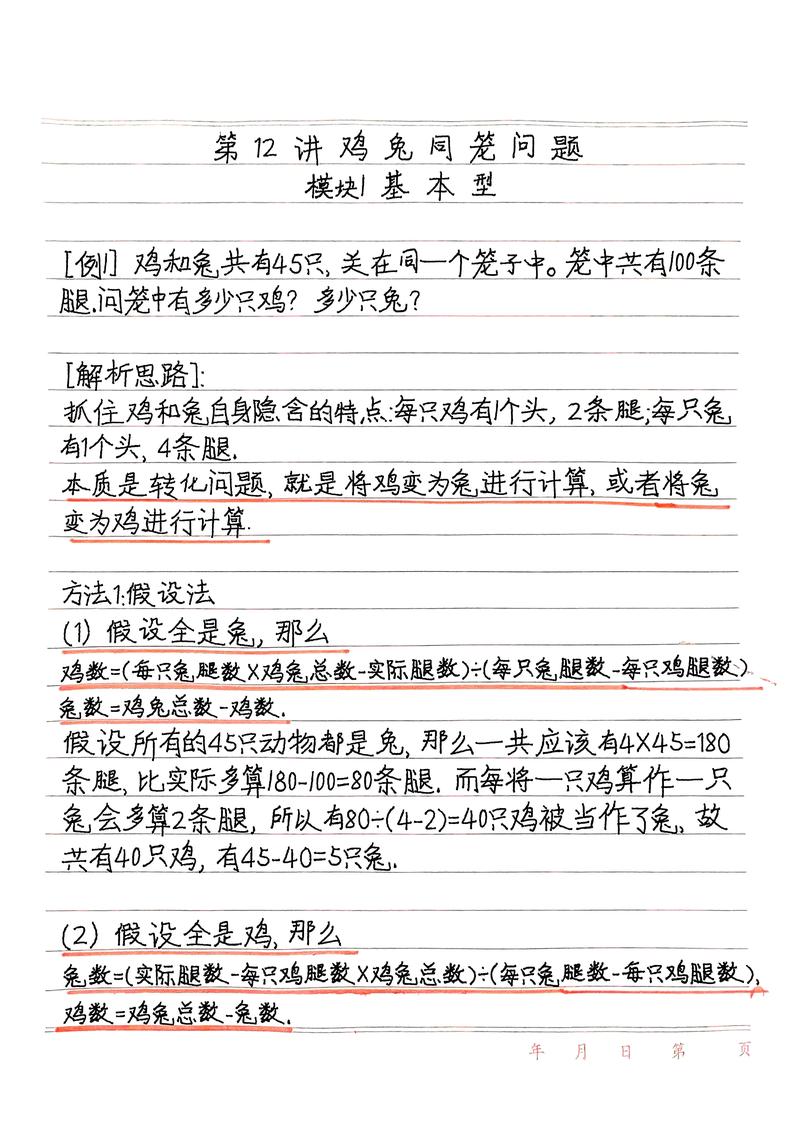 第12讲鸡兔同笼问题
模块1基本型
[例1] 鸡和兔共有45只,关在同一个笼子中。笼中共有100条
腿.问笼中有多少只鸡? 多少只兔?
[解析思路]:
抓住鸡和兔自身隐含的特点:每只鸡有1个头, 2条腿;每只兔
有1个头, 4条腿.
本质是转化问题, 就是将鸡变为兔进行计算, 或者将兔
变为鸡进行计算.
方法1:假设法
(1) 假设全是兔, 那么
鸡数=(每只兔腿数X鸡兔总数-实际腿数)÷(每只兔腿数-每只鸡腿数)
兔数=鸡兔总数-鸡数.
假设所有的45只动物都是兔, 那么一共应该有4X45=180
条腿, 比实际多算180-100=80条腿. 而每将一只鸡算作一只
兔会多算2条腿, 所以有80÷(4-2)=40只鸡被当作了兔. 故
共有40只鸡, 有45-40=5只兔.
(2) 假设全是鸡, 那么
兔数=(实际腿数-每只鸡腿数X鸡兔总数)÷(每只兔腿数-每只鸡腿数),
鸡数=鸡兔总数-兔数.
年 月 日 第 页